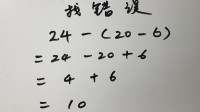 找错误
24 - (20 - 6)
= 24 - 20 + 6
= 4 + 6
= 10